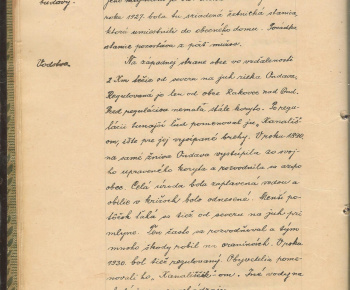 budovy.
roku 1927 bola tu zriadená četnícka stanica,
ktorú umiestnili do obecného domu. Posádka
stanice pozostáva z piati mužov.
Podoba.
Na západnej strane obce vo vzdialenosti
2 Km tečie od severu na juh rieka Ondava.
Regulovaná je len od obce Rakovec nad Ond.
Pred reguláciou nemala stále koryto. Po regu-
lácii tunajší ľud pomenoval ju „Kanališ-
om, ešte pre jej vysýpané brehy. V roku 1890,
na samé žniva Ondava vystúpila zo svoj-
ho upraveného koryta a rozvodnila sa až po
obec. Celá úroda bola zaplavená vodou a
obilie v krížoch bolo odnesené. Menší po-
tôčok ťahá sa tiež od severu na juh pri
mlyne. Ten často sa rozvodňoval a tým
mnoho škody robil na oraninách. V roku
1930. bol tiež regulovaný. Obyvatelia pome-
novali ho „ om. Iné vody na